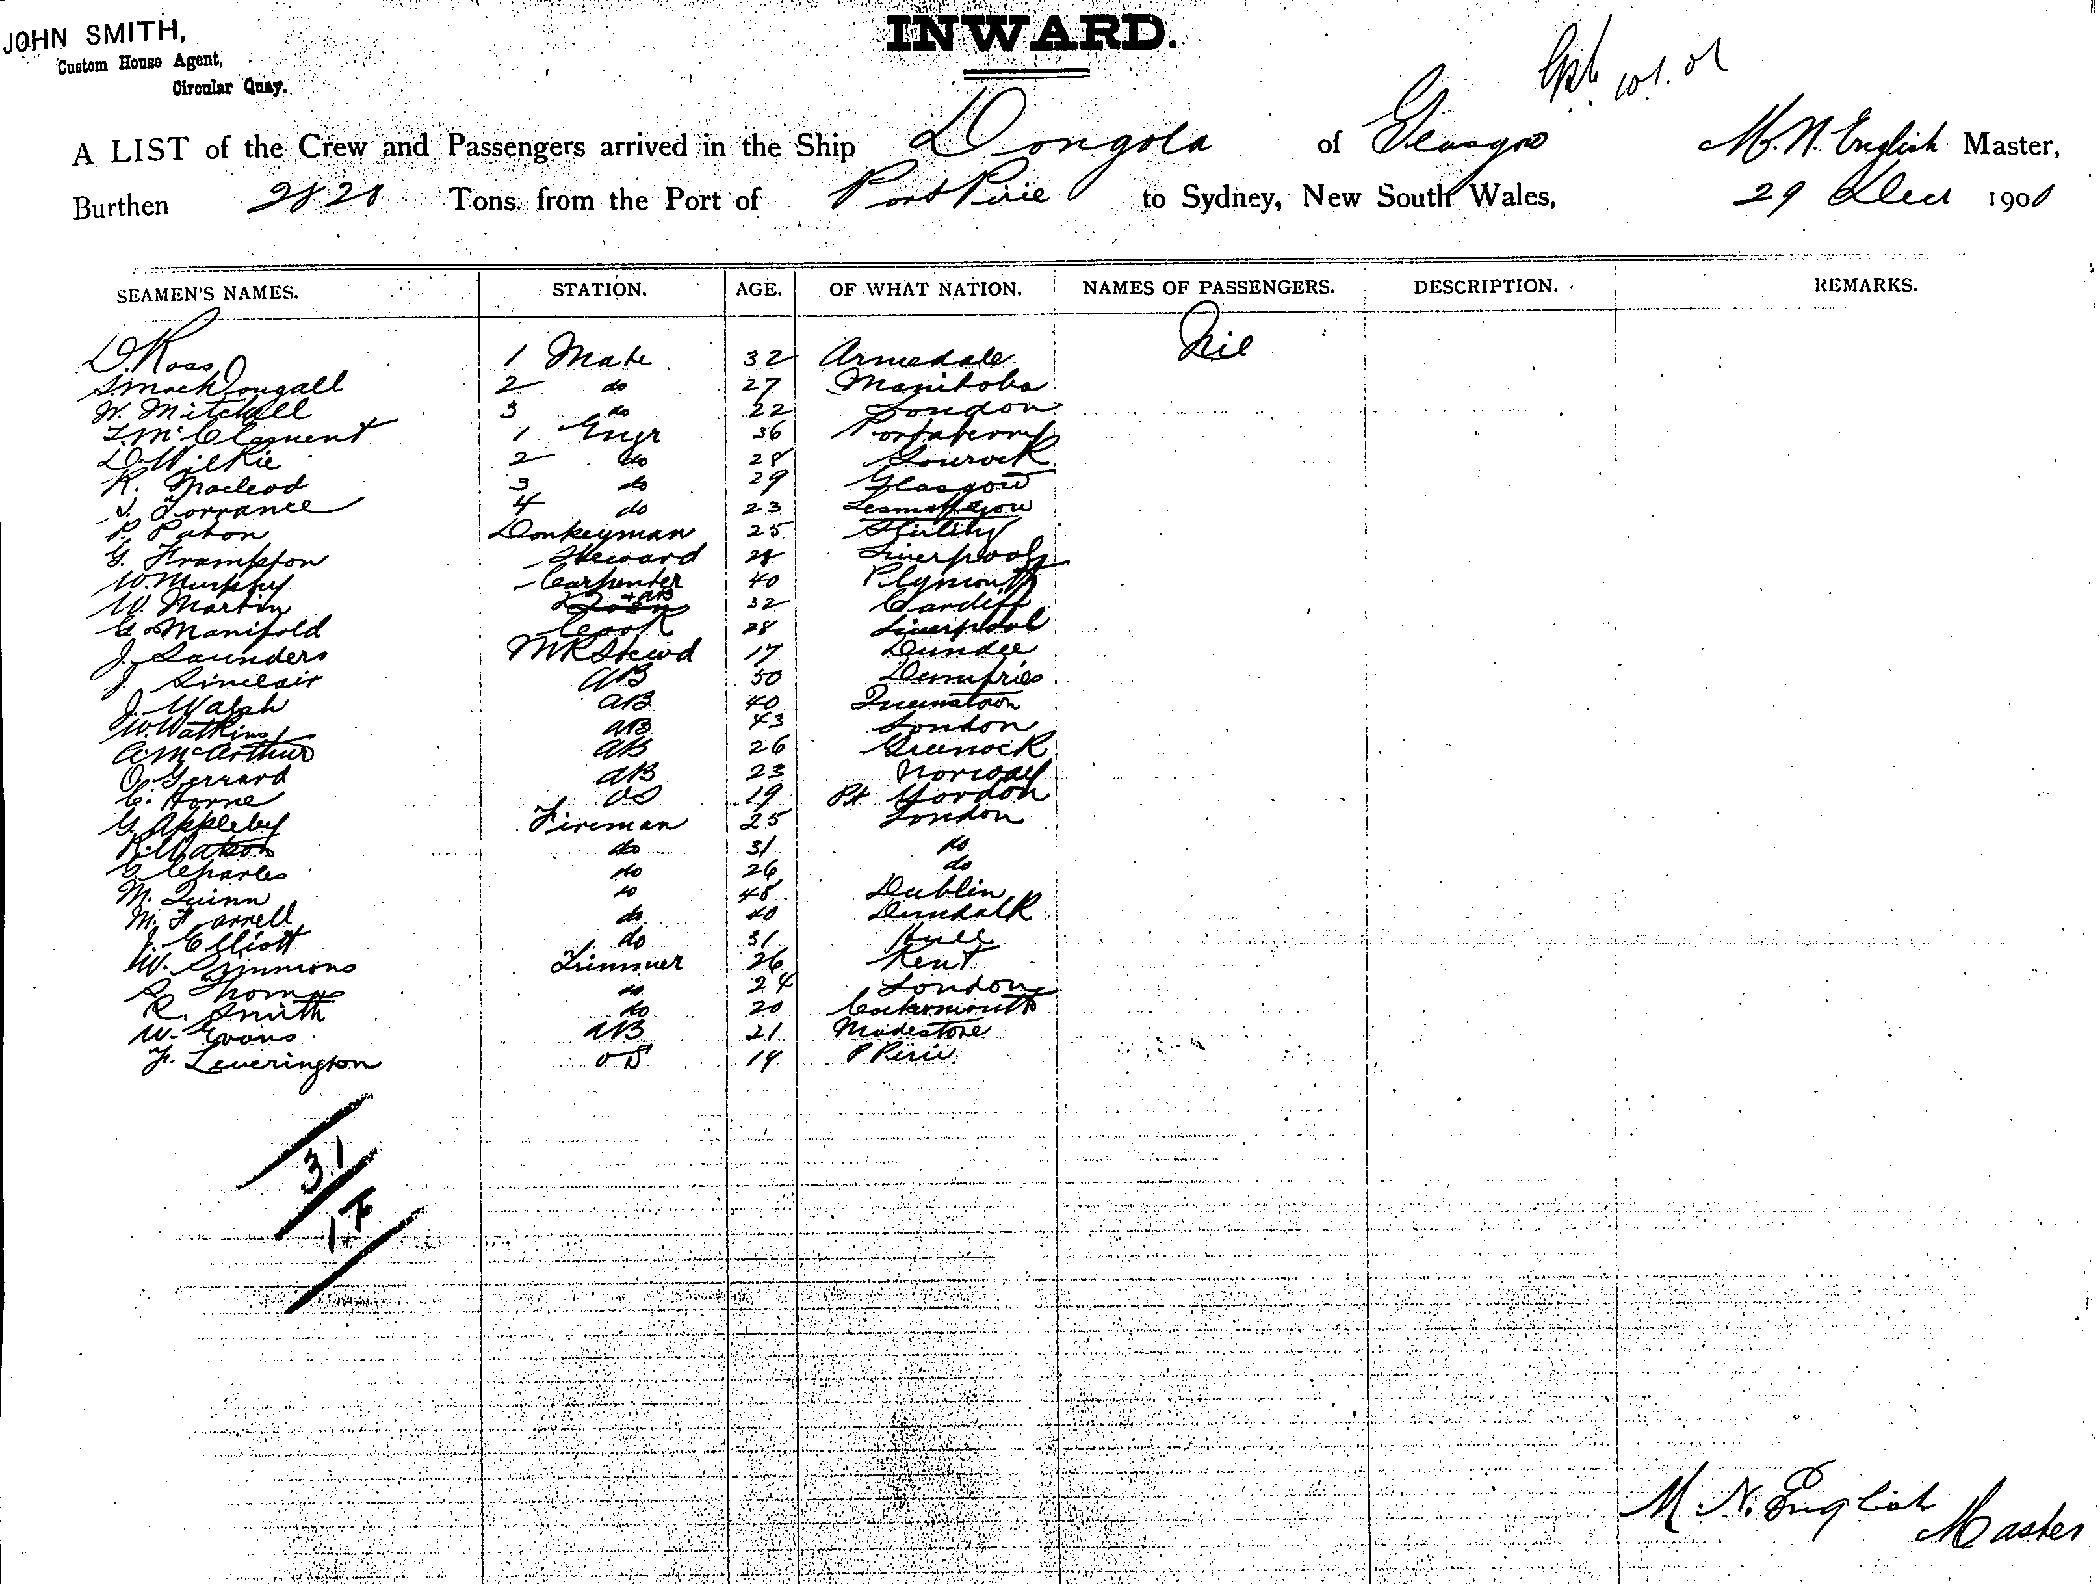 JOHN SMITH,
Custom House Agent,
Circular Quay.
INWARD.
A LIST of the Crew and Passengers arrived in the Ship Dongola of Glasgow M. N. English Master,
Burthen 2820 Tons from the Port of Port Pirie to Sydney, New South Wales, 29 Decr 1901
SEAMEN'S NAMES. STATION. AGE. OF WHAT NATION. NAMES OF PASSENGERS. DESCRIPTION. REMARKS.
D. Ross 1 Mate 32 Armadale Nil
S. MackDougall 2 do 27 Manitoba
W. Mitchell 3 do 22 London
McClement 1 Engr 36 Portaferry
D. Wilkie 2 do 28 Gourock
R. Macleod 3 do 29 Glasgow
J. Torrance 4 do 23
P. Paton Donkeyman 25 Stirling
G. Frampton Steward 28 Liverpool
W. Murphy Carpenter 40 Plymouth
W. Martin + AB 32 Cardiff
G. Manifold Cook 28 Liverpool
J. Saunders MR Stewd 17 Dundee
J. Sinclair AB 50 Dumfries
J. Walsh AB 40 Queenstown
W. Watkins AB 43 London
A. McArthur AB 26 Greenock
O. Gerrard AB 23 Norway
C. Horne OS 19 Pt Gordon
G. Appleby Fireman 25 London
R. Watson do 31 do
C. Charles do 26 do
M. Quinn do 48 Dublin
M. Farrell do 40 Dundalk
J. Elliott do 31 Hull
W. Simmons Trimmer 26 Kent
Thomas do 24 London
R. Smith do 20 Cockermouth
W. Evans AB 21
F. Leverington OS 19 P Pirie
31
1 F
M. N. English
Master